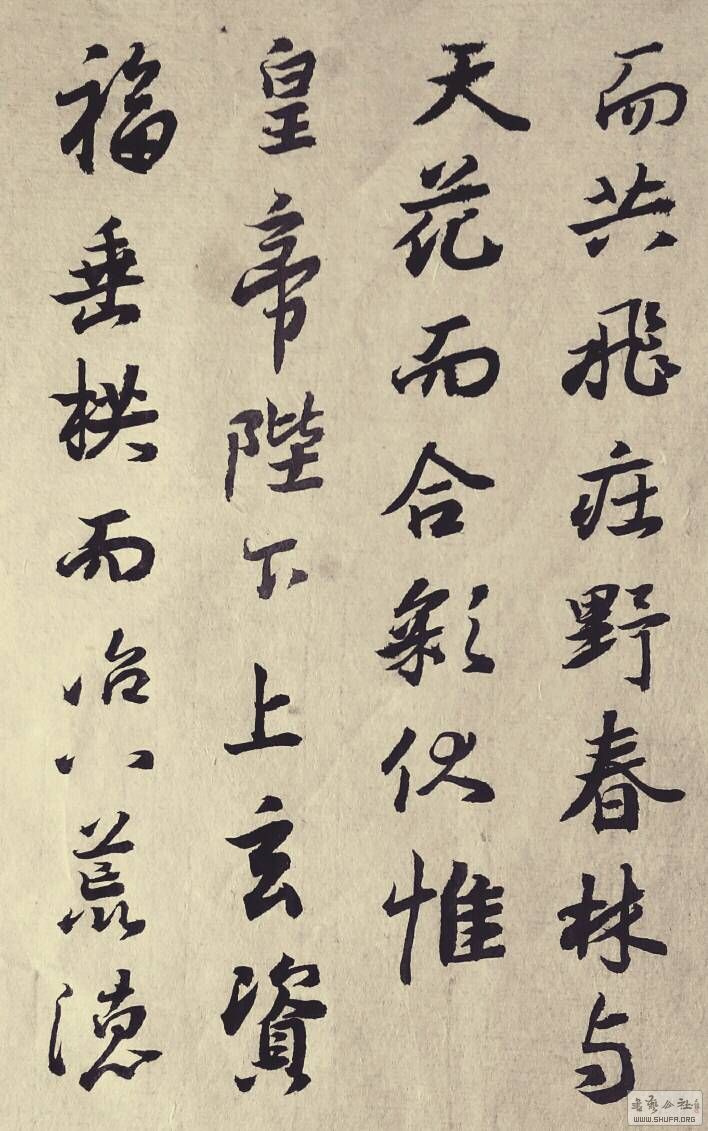 而共飛庄野春林与
天花而合彩伏惟
皇帝陛下上玄資
福垂拱而治八荒德
书艺公社
WWW.SHUFA.ORG